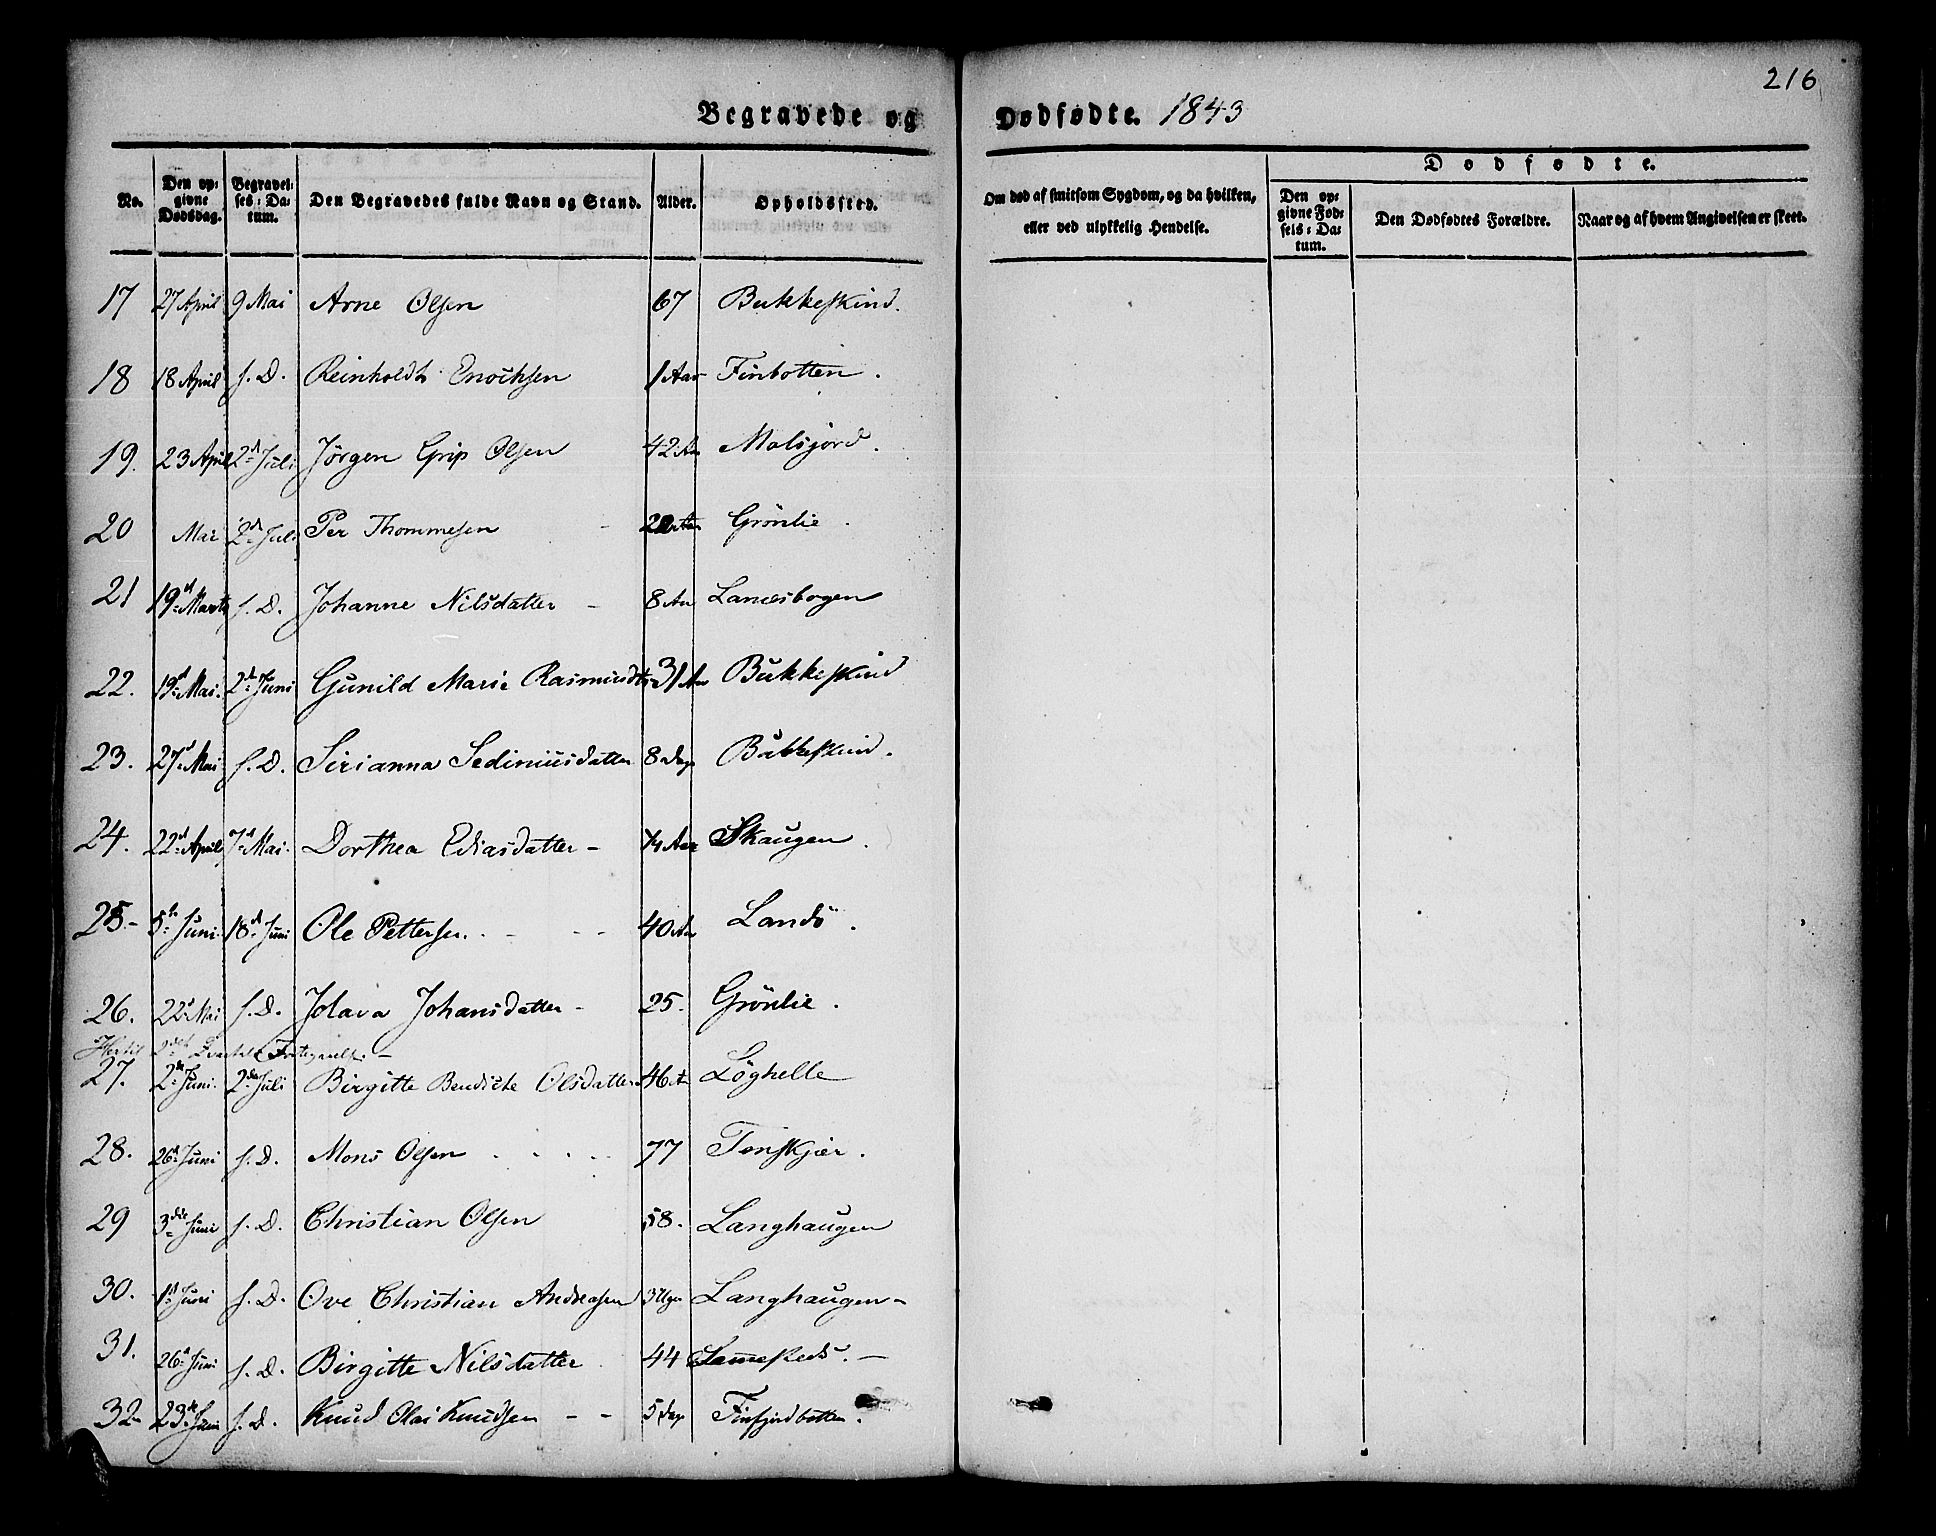 216
Begravede og Dødfødte. 1843
No. Den opgivne Dødsdag. Begravelses-Datum. Den Begravedes fulde Navn og Stand. Alder. Opholdssted. Om død af smitsom Sygdom, og da hvilken, eller ved ulykkelig Hendelse. Dødfødte. Den opgivne Fødsels-Datum. Den Dødfødtes Forældre. Naar og af hvem Angivelsen er skeet.
17 27 April 9 Mai Arne Olsen 67 Bukkeskind.
18 18 April s. D. Reinholdt Enochsen 1 Aar Finbotten.
19. 23 April 2d Juli Jörgen Grip Olsen 42 Aar Malsjord.
20 Mai 2d Juli Per Thommesen Grönlie.
21 19d Marts s. D. Johanne Nilsdatter - 8 Aar Lanesbogen
22. 19d Mai. 2d Juni Gunild Marie Rasmusdtr 31 Aar Bukkeskind
23. 27d Mai s. D. Sirianna Sediniusdatter 8 Dage Bukkeskind.
24. 22d April 7d Mai. Dorthea Ediasdatter - Aar Skaugen.
25.- 5te Juni. 18d Juni Ole Pettersen. - - - 40 Aar Landö.
26. 22d Mai s. D. Jolava Johansdatter - 25. Grönlie.
Hertil 2det Qvartal -
27. 2de Juni. 2den Juli Birgitte Bendicte Olsdatter 46 Aar Löghelle
28. 26d Juni s. D. Mons Olsen . . . . . 77 Tenskjær.
29 3die Juni s. D. Christian Olsen 58. Langhaugen
30. 1d Juni s. D. Ove Christian Andreasen 3 Uger Langhaugen-
31. 26d Juni s. D. Birgitte Nilsdatter 44
32 23de Juni s. D. Knud Olai Knudsen - - 5 Dage Finfjordbotten.